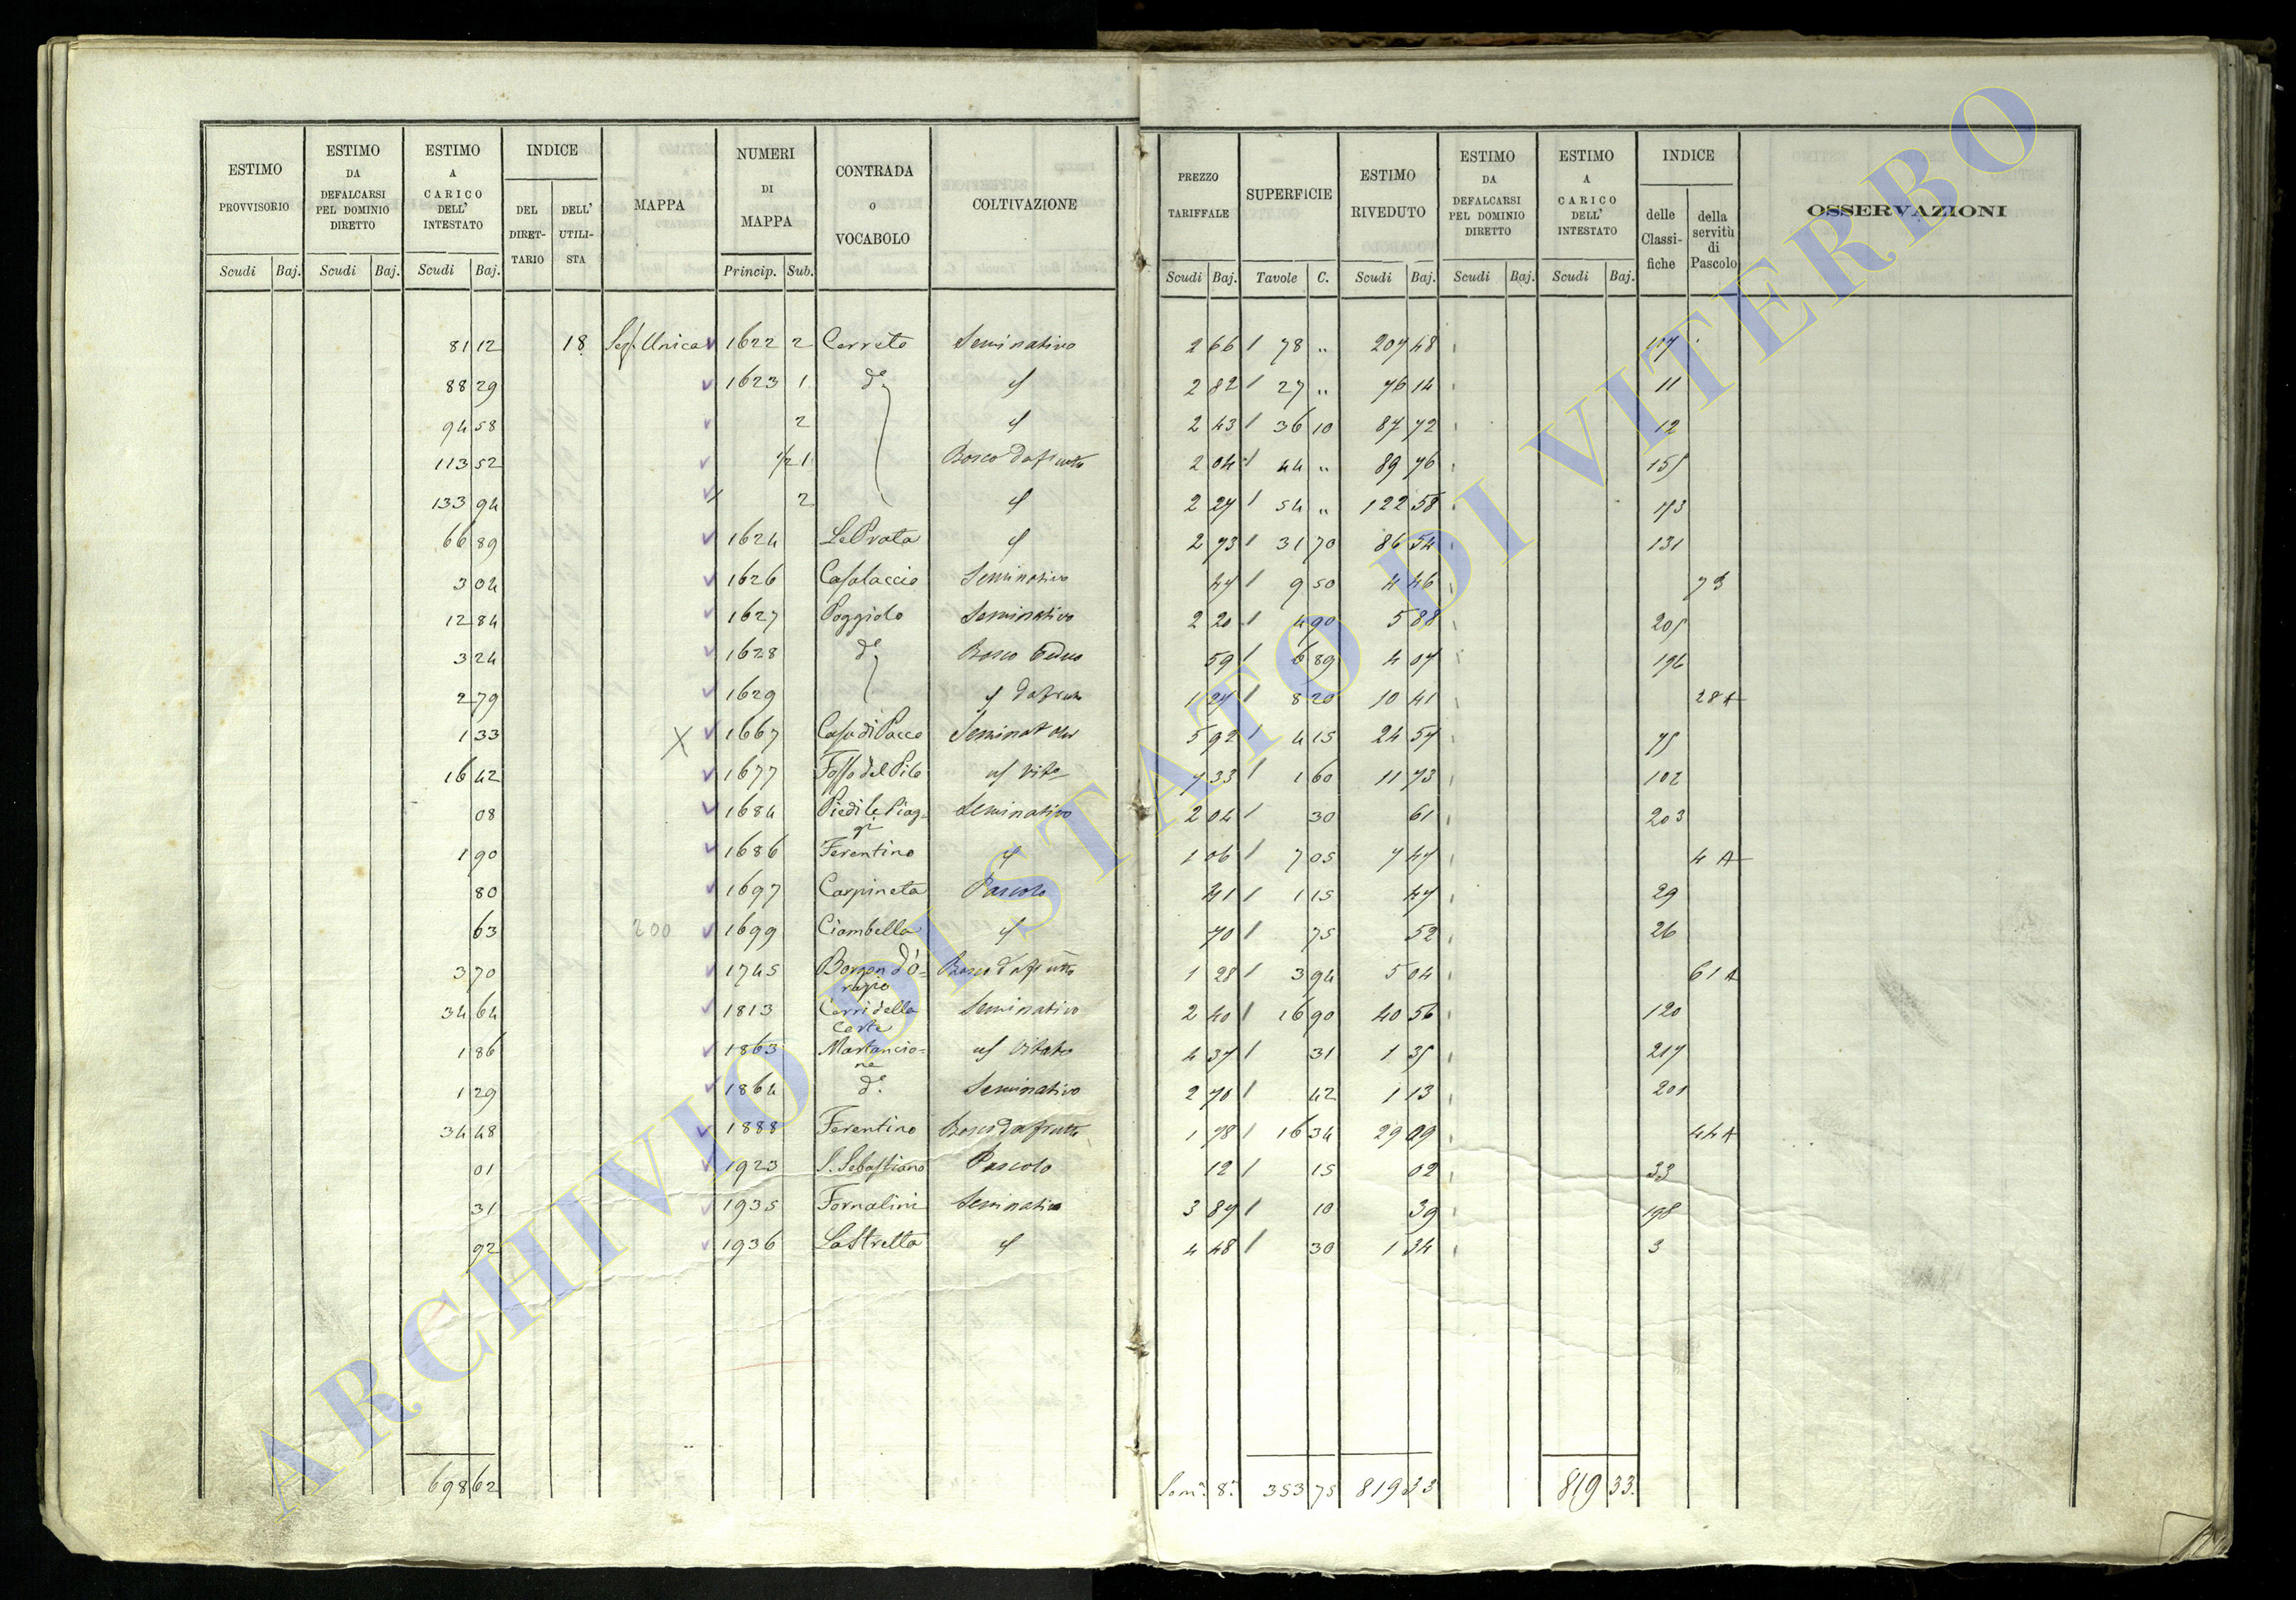 ESTIMO PROVVISORIO | ESTIMO DA DEFALCARSI PEL DOMINIO DIRETTO | ESTIMO A CARICO DELL' INTESTATO | INDICE | MAPPA | NUMERI DI MAPPA | CONTRADA o VOCABOLO | COLTIVAZIONE | PREZZO TARIFFALE | SUPERFICIE | ESTIMO RIVEDUTO | ESTIMO DA DEFALCARSI PEL DOMINIO DIRETTO | ESTIMO A CARICO DELL' INTESTATO | INDICE | OSSERVAZIONI
DEL DIRET-TARIO | DELL' UTILI-STA | delle Classi-fiche | della servitù di Pascolo
Scudi | Baj. | Scudi | Baj. | Scudi | Baj. | Princip. | Sub. | Scudi | Baj. | Tavole | C. | Scudi | Baj. | Scudi | Baj. | Scudi | Baj.
81 12 | 18 | Sez. Unica | 1622 | 2 | Cerreto | Seminativo | 2 66 | 78 " | 207 48 | 117
88 29 | 1623 | 1 | d° | " | 2 82 | 27 " | 76 14 | 11
94 58 | 2 | " | 2 43 | 36 10 | 87 72 | 12
113 52 | 1/2 1 | Bosco da frutto | 2 04 | 44 " | 89 76 | 155
133 94 | 2 | " | 2 27 | 54 " | 122 58
66 89 | 1624 | Le Prata | " | 2 73 | 31 70 | 86 54 | 131
3 04 | 1626 | Casalaccio | Seminativo | 47 | 9 50 | 4 46 | 73
12 84 | 1627 | Poggiolo | Seminativo | 2 20 | 4 90 | 5 88 | 205
3 24 | 1628 | d° | Bosco Ceduo | 59 | 6 89 | 4 07 | 196
2 79 | 1629 | " da frutto | 1 27 | 8 20 | 10 41 | 28 A
1 33 | X | 1667 | Casa di Pacco | Seminat. oliv | 5 92 | 4 15 | 24 57 | 75
16 42 | 1677 | Fosso del Pilo | " vitato | 7 33 | 1 60 | 11 73 | 102
08 | 1684 | Piedi le Piag-gie | Seminativo | 2 04 | 30 | 61 | 203
1 90 | 1686 | Ferentino | " | 1 06 | 7 05 | 7 47 | 4 A
80 | 1697 | Carpineta | Pascolo | 41 | 1 15 | 47 | 29
63 | 200 | 1699 | Ciambella | " | 70 | 75 | 52 | 26
3 70 | 1745 | d'O-razio | Bosco da frutto | 1 28 | 3 94 | 5 04 | 61 A
34 64 | 1813 | Cerri della Corte | Seminativo | 2 40 | 16 90 | 40 56 | 120
1 86 | 1863 | Martancio-ne | " Vitato | 4 37 | 31 | 1 35 | 217
1 29 | 1864 | d° | Seminativo | 2 70 | 42 | 1 13 | 201
34 48 | 1888 | Ferentino | Bosco da frutto | 1 78 | 16 34 | 29 09 | 44 A
01 | 1923 | S. Sebastiano | Pascolo | 12 | 15 | 02 | 33
31 | 1935 | Fornalini | Seminativo | 3 87 | 10 | 39 | 198
92 | 1936 | La Stretta | " | 4 48 | 30 | 1 34 | 3
698 62 | Som.a 8.a | 353 75 | 819 33 | 819 33
ARCHIVIO DI STATO DI VITERBO